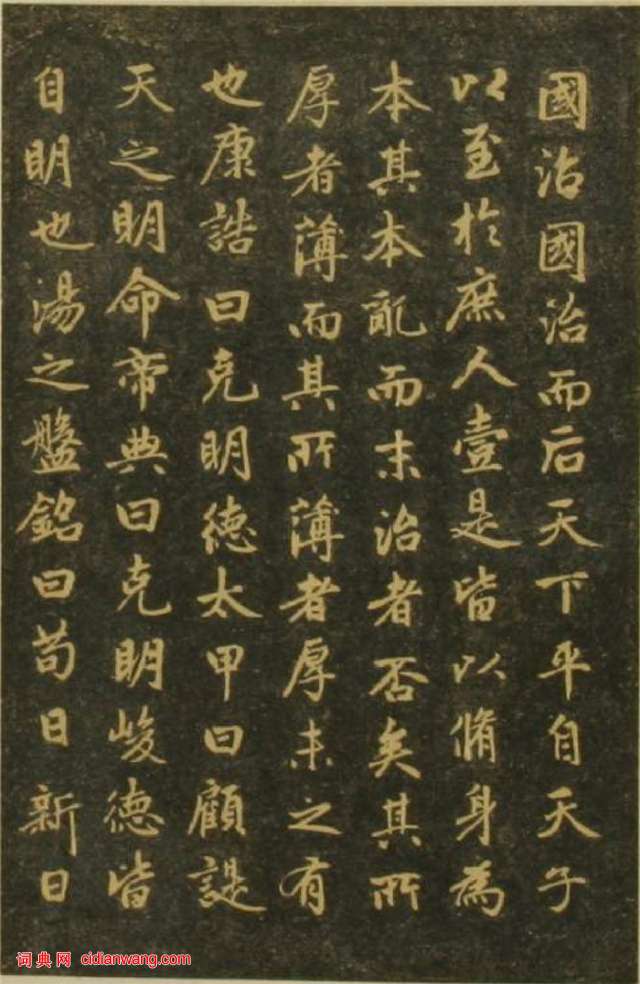 國治國治而后天下平自天子
以至於庶人壹是皆以脩身為
本其本亂而末治者否矣其所
厚者薄而其所薄者厚未之有
也康誥曰克明德太甲曰顧諟
天之明命帝典曰克明峻德皆
自明也湯之盤銘曰苟日新日
词典网 cidianwang.com